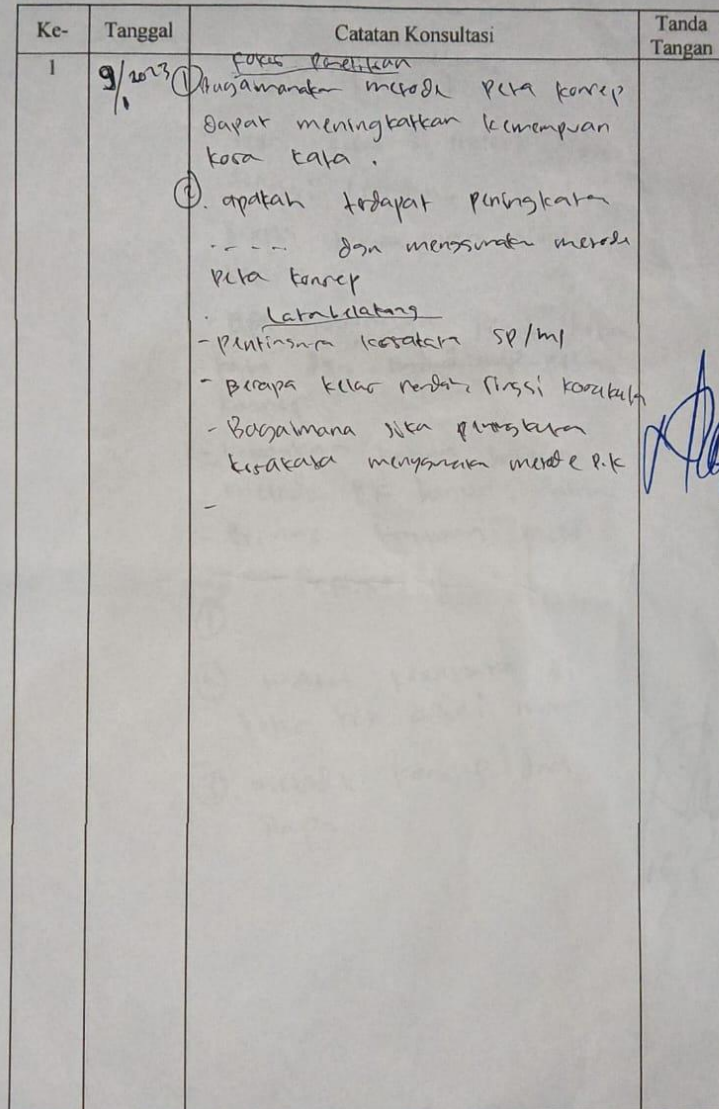 Ke- Tanggal Catatan Konsultasi Tanda Tangan
1 9/1 2023 Fokus Penelitian
① Bagaimanakan metode peta konsep
dapat meningkatkan kemempuan
kosa kata .
②. apakah terdapat peningkatan
..... dgn menggunakan metode
peta konsep
Latarbelakang
- pentingnya kosakata SD/MI
- Berapa kelas rendah, tinggi kosakata
- Bagaimana jika
kosakata menggunakan metode p.k
-